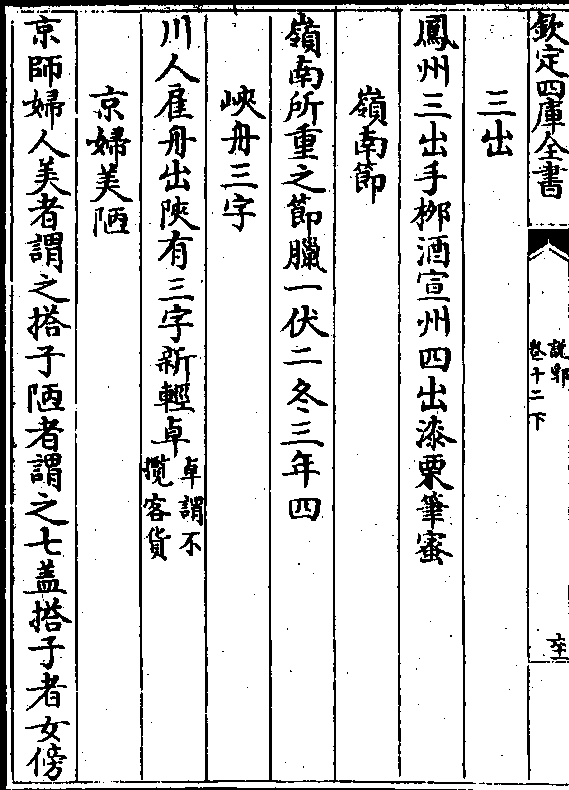 欽定四庫全書
說郛
卷十二下
三出
鳳州三出手栁酒宣州四出漆栗筆蜜
嶺南節
嶺南所重之節臘一伏二冬三年四
峽舟三字
川人雇舟出陜有三字新輕卓卓謂不攬客貨
京婦美陋
京師婦人美者謂之搭子陋者謂之七盖搭子者女傍